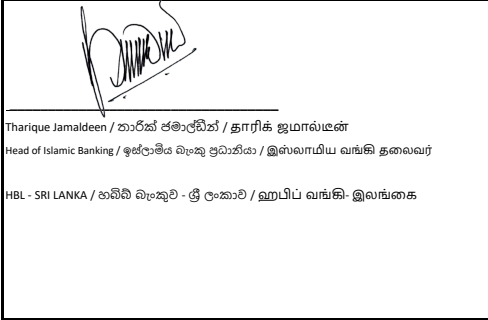 Tharique Jamaldeen / තාරික් ජමාල්ඩීන් / தாரிக் ஜமால்டீன்
Head of Islamic Banking / ඉස්ලාමීය බැංකු ප්‍රධානියා / இஸ்லாமிய வங்கி தலைவர்
HBL - SRI LANKA / හබීබ් බැංකුව - ශ්‍රී ලංකාව / ஹபிப் வங்கி- இலங்கை